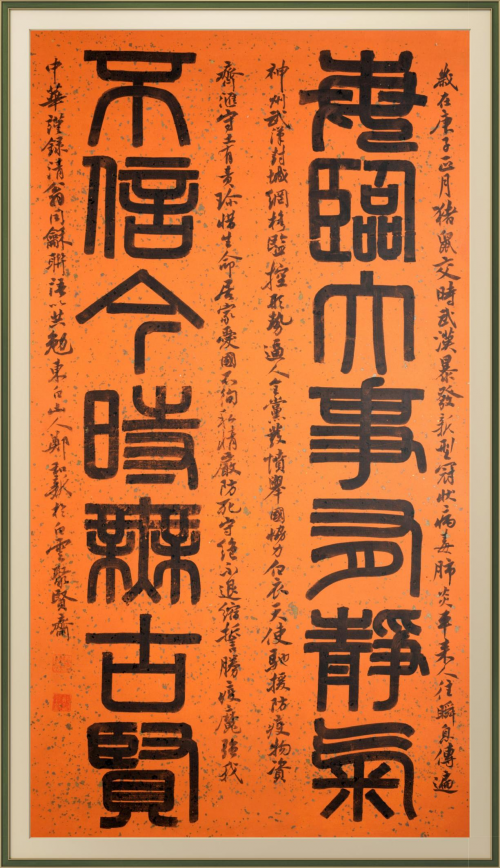 歲在庚子正月猪鼠交時武漢暴發新型冠狀病毒肺炎車來人往瞬息傳遍
每臨大事有靜氣
神州武漢封城網格監控形勢逼人全黨發憤舉國協力白衣天使馳援防疫物資
齊進守土有責珍惜生命居家愛國不徇私情嚴防死守絕不退縮誓勝疫魔強我
不信今時無古賢
中華謹錄清翁同龢聯語以共勉東白山人鄭和新於白雲聚賢齋